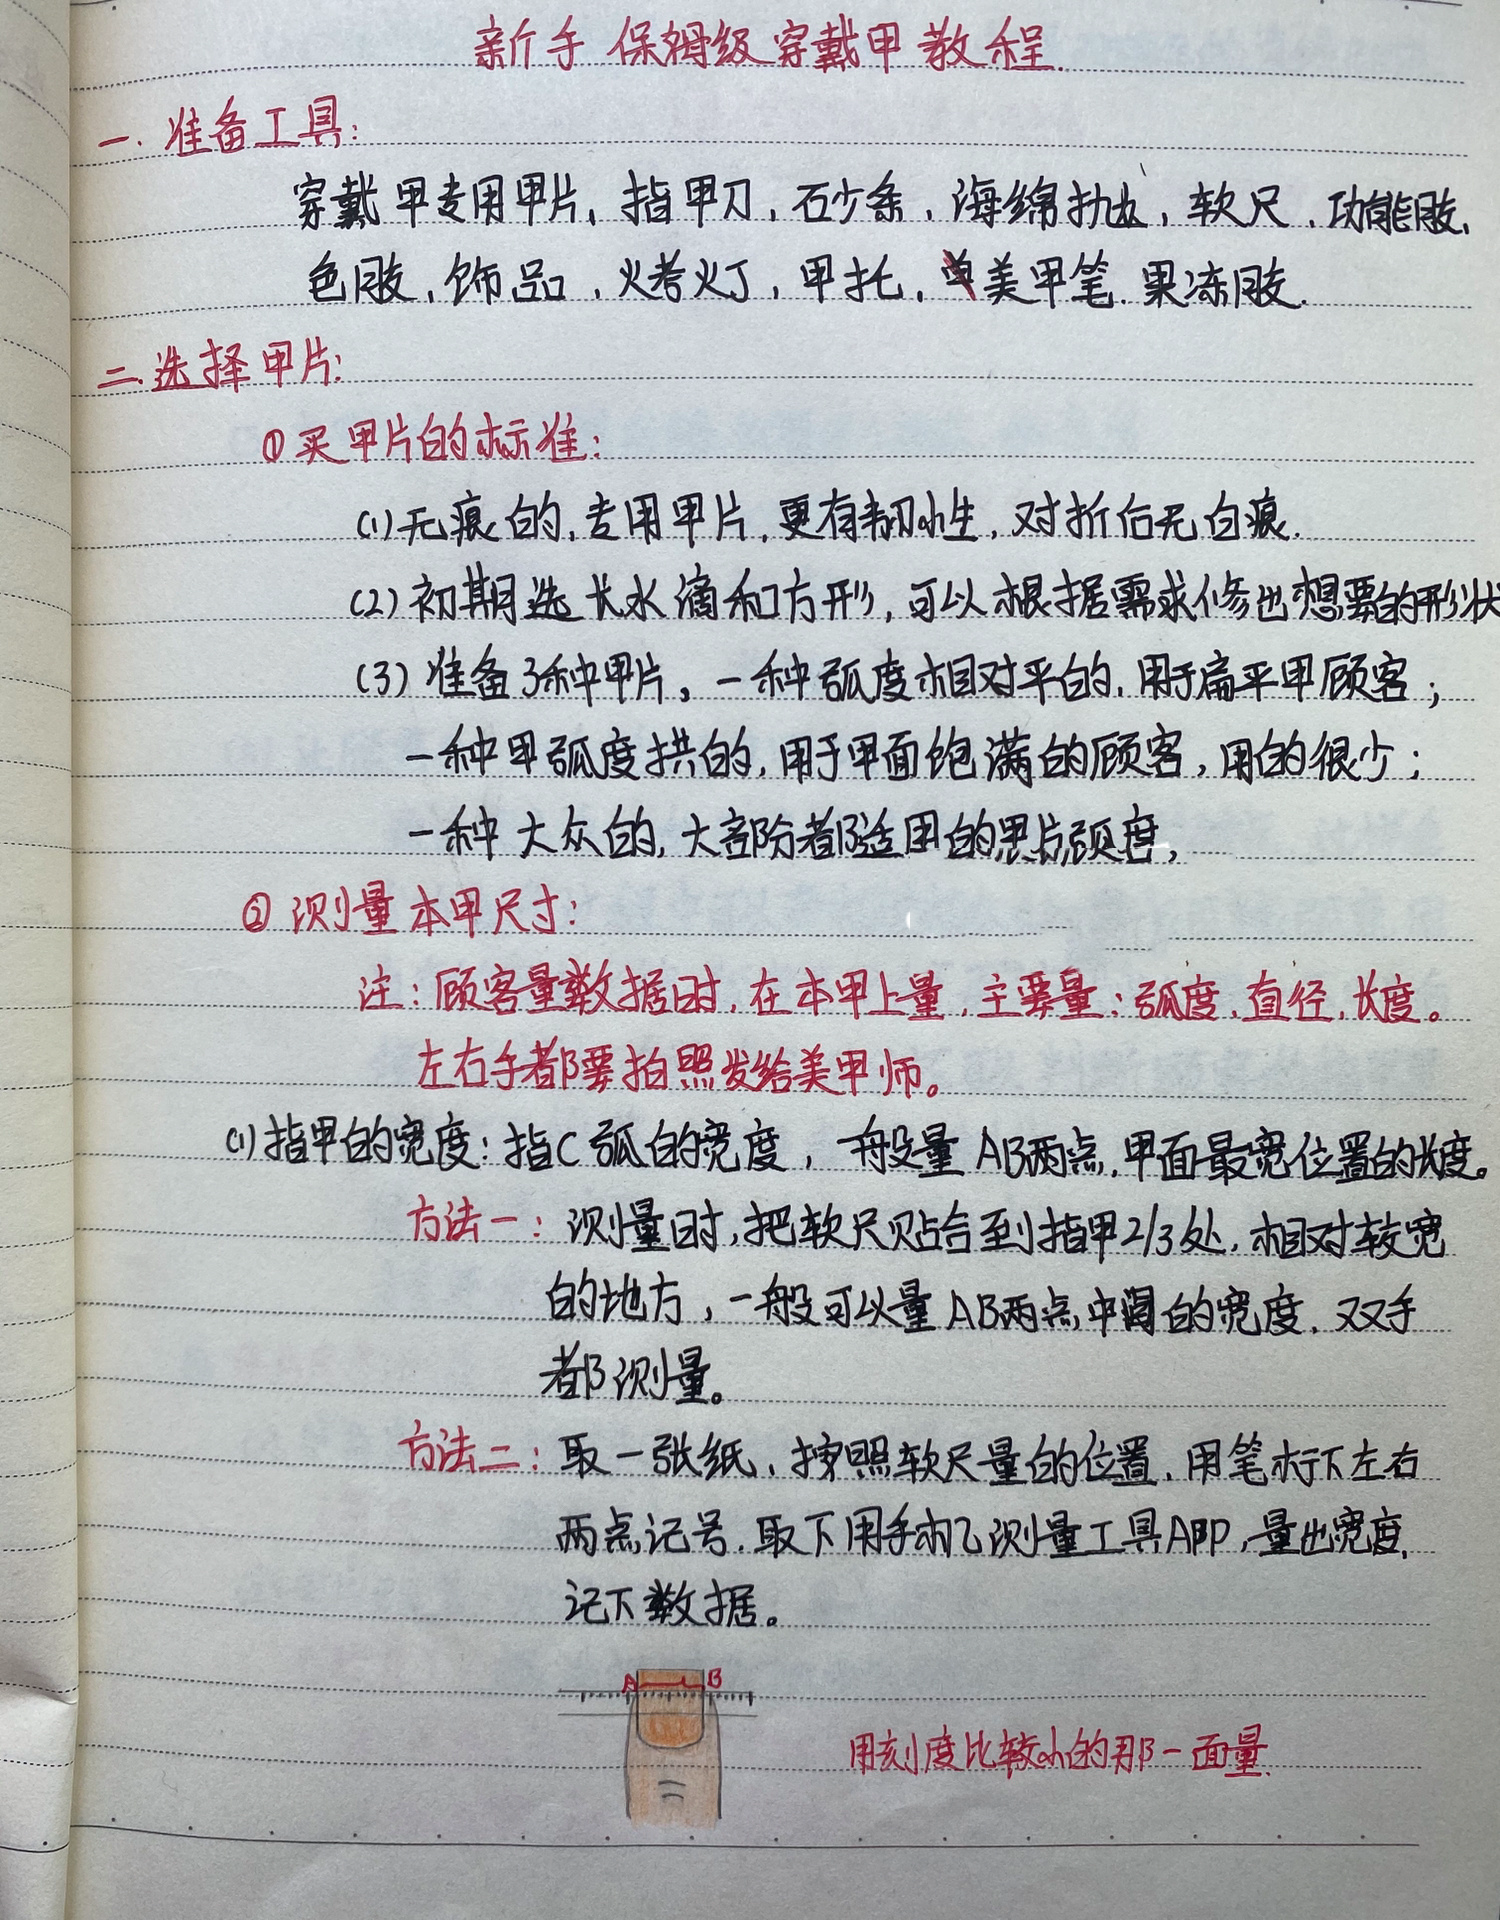 新手保姆级穿戴甲教程.
一.准备工具:
穿戴甲专用甲片,指甲刀,石少条,海绵抛,软尺,功能胶,
色胶,饰品,火考火丁,甲托,美甲笔.果冻胶.
二.选择甲片:
①买甲片的标准:
(1)无痕的,专用甲片,更有韧性,对折后无白痕.
(2)初期选长水滴和方形,可以根据需求修出想要的形状
(3)准备3种甲片。一种弧度相对平的,用于扁平甲顾客;
一种甲弧度拱的,用于甲面饱满的顾客,用的很少;
一种大众的,大部分都适用的甲片弧度,
②测量本甲尺寸:
注:顾客量数据时,在本甲上量,主要量:弧度,直径,长度。
左右手都要拍照发给美甲师。
(1)指甲的宽度:指C弧的宽度,一般量AB两点,甲面最宽位置的长度。
方法一:测量时,把软尺贴合到指甲2/3处,相对较宽
的地方,一般可以量AB两点中间的宽度,双手
都测量。
方法二:取一张纸,按照软尺量的位置,用笔标下左右
两点记号,取下用手机测量工具APP,量出宽度,
记下数据。
A B
用刻度比较小的那一面量.